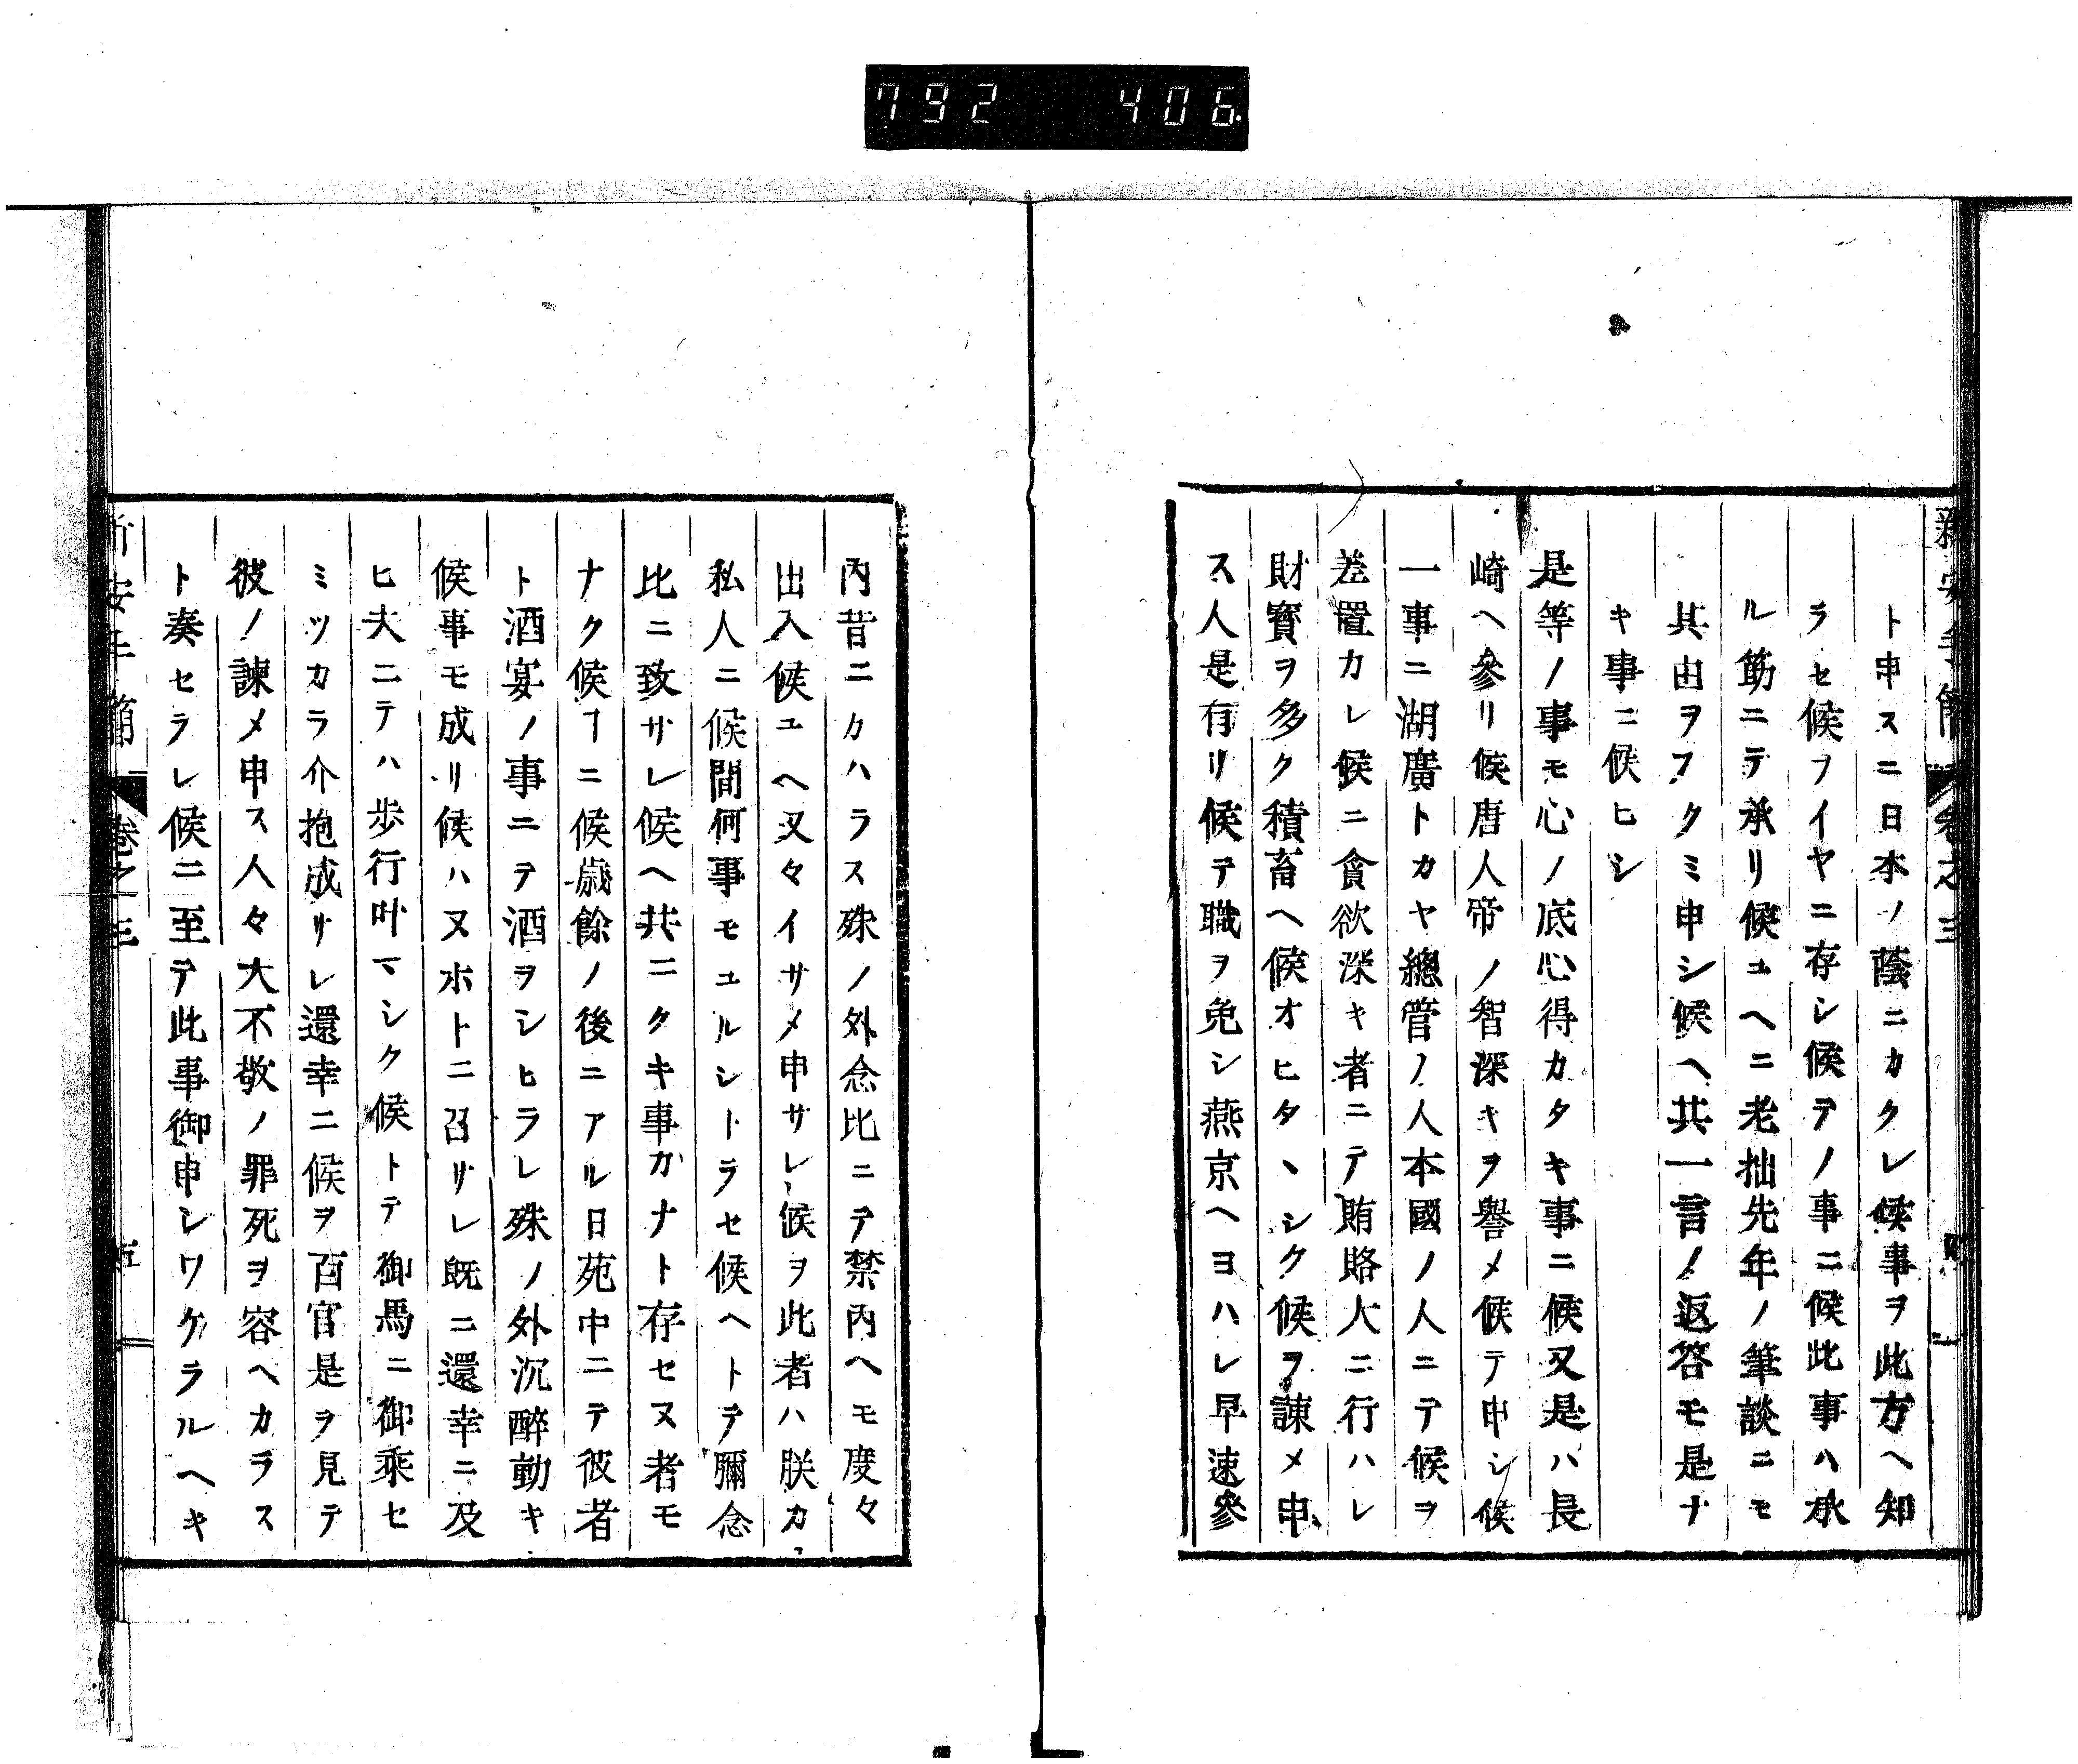 792 406
新安手簡 卷之三 四
ト申スニ日本ノ蔭ニカクレ候事ヲ此方ヘ知
ラセ候ヲイヤニ存シ候テノ事ニ候此事ハ承
ル筋ニテ承リ候ユヘニ老拙先年ノ筆談ニモ
其由ヲフクミ申シ候ヘ共一言ノ返答モ是ナ
キ事ニ候ヒシ
是等ノ事モ心ノ底心得カタキ事ニ候又是ハ長
崎ヘ參リ候唐人帝ノ智深キヲ譽メ候テ申シ候
一事ニ湖廣トカヤ總管ノ人本國ノ人ニテ候ヲ
差置カレ候ニ貪欲深キ者ニテ賄賂大ニ行ハレ
財寶ヲ多ク積畜ヘ候オヒタヽシク候ヲ諫メ申
ス人是有リ候テ職ヲ免シ燕京ヘヨハレ早速參
內昔ニカハラス殊ノ外念比ニテ禁內ヘモ度々
出入候ユヘ又々イサメ申サレ候ヲ此者ハ朕カ
私人ニ候間何事モユルシトラセ候ヘトテ彌念
比ニ致サレ候ヘ共ニクキ事カナト存セヌ者モ
ナク候ヿニ候歲餘ノ後ニアル日苑中ニテ彼者
ト酒宴ノ事ニテ酒ヲシヒラレ殊ノ外沉醉動キ
候事モ成リ候ハヌホトニ召サレ既ニ還幸ニ及
ヒ夫ニテハ歩行叶マシク候トテ御馬ニ御乘セ
ミツカラ介抱成サレ還幸ニ候ヲ百官是ヲ見テ
彼ノ諫メ申ス人々大不敬ノ罪死ヲ容ヘカラス
ト奏セラレ候ニ至テ此事御申シワケラルヘキ
新安手簡 卷之三 五